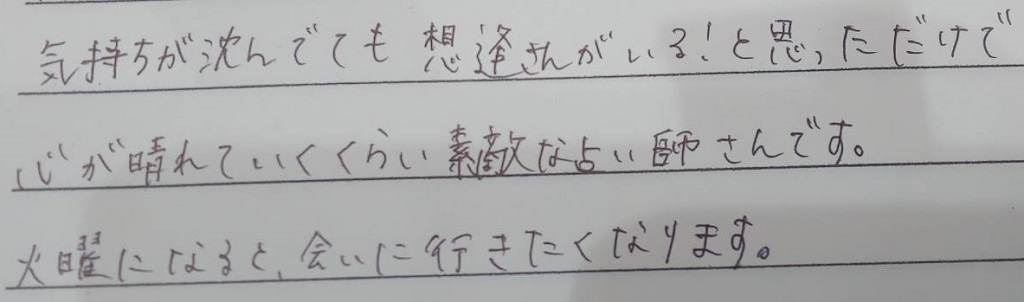 気持ちが沈んでても 想逢さんがいる!と思っただけで
心が晴れていくくらい素敵な占い師さんです。
火曜になると、会いに行きたくなります。